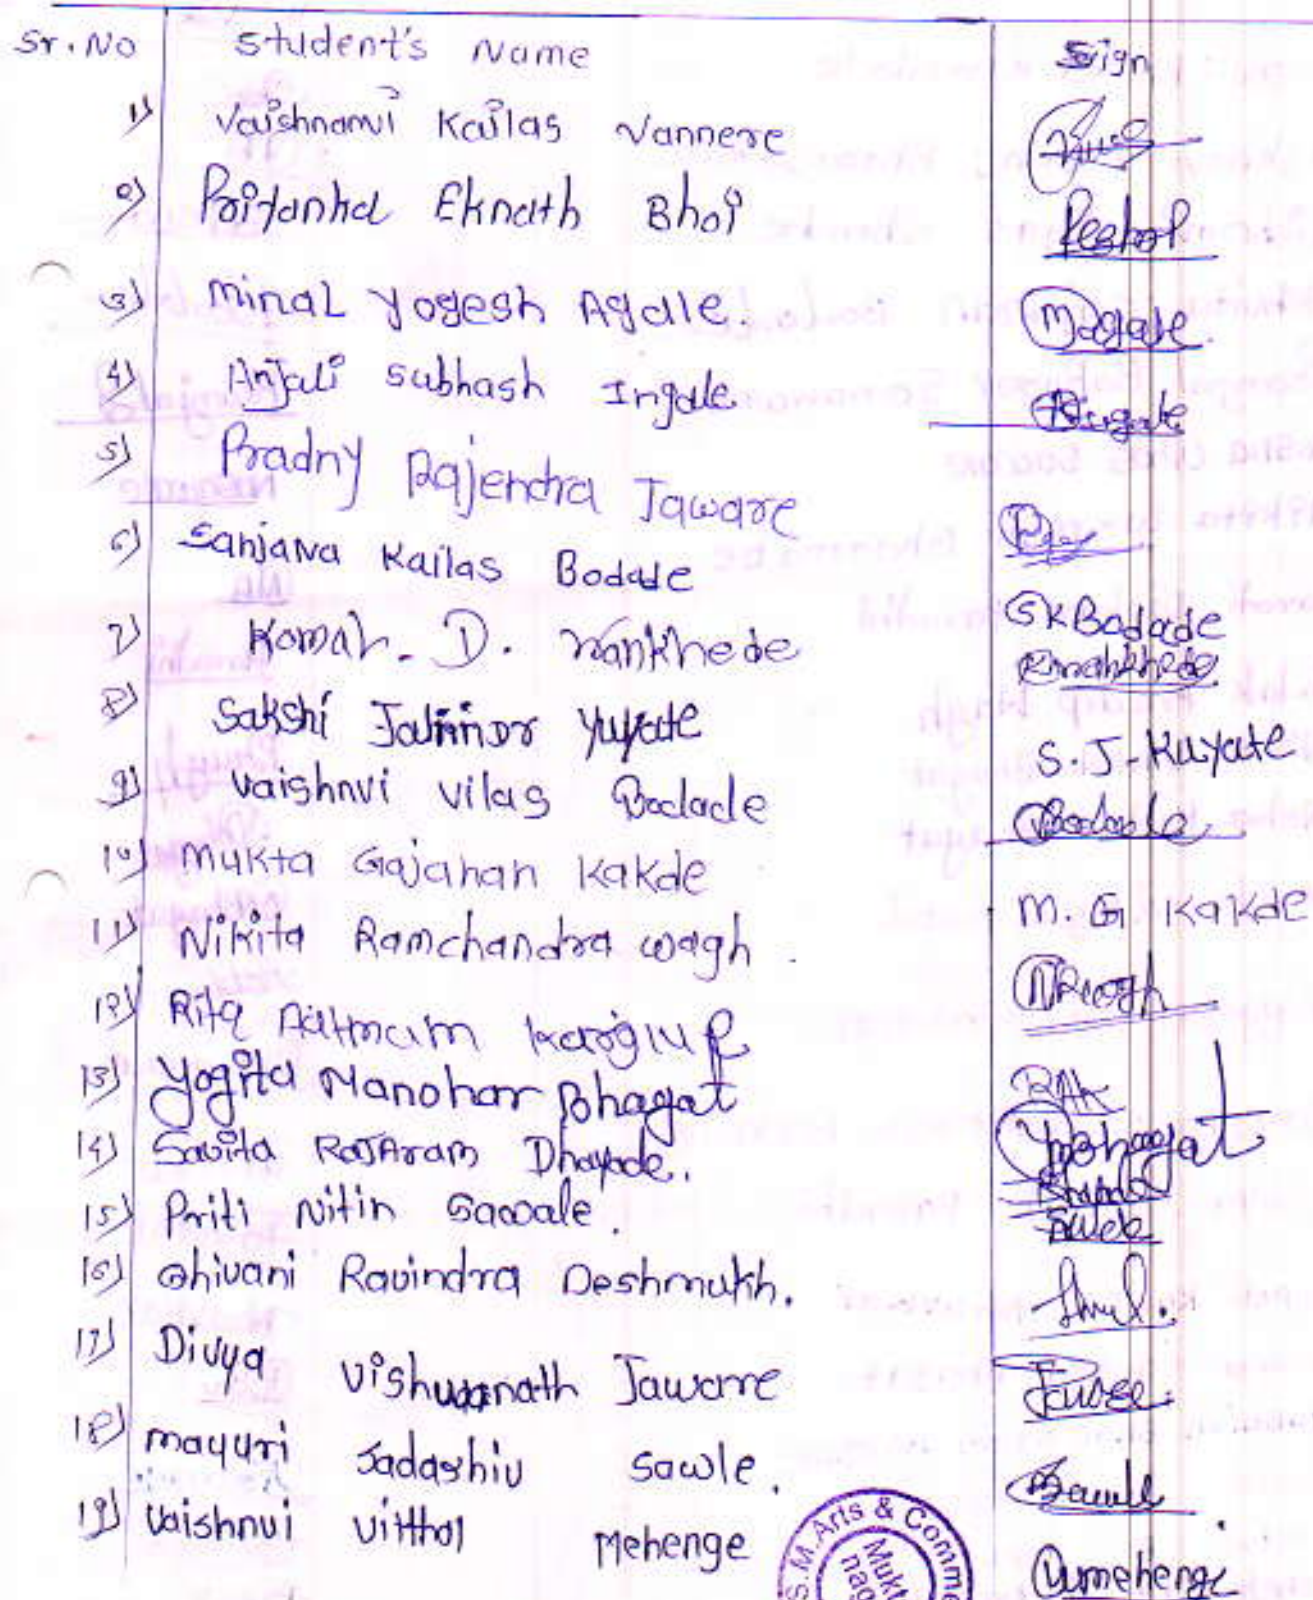 Sr. No Student's Name Sign
1) Vaishnavi Kailas Vannere
2) Priyanka Eknath Bhoi
3) Minal Yogesh Agale. Magale.
4) Anjali Subhash Ingale AIngale
5) Pradny Rajendra Jaware
6) Sanjana Kailas Bodade SKBodade
7) Komal. D. Wankhede KWankhede
8) Sakshi S.J. Kuyate
9) Vaishnvi Vilas Bodade Bodade
10) Mukta Gajanan Kakde M. G Kakde
11) Nikita Ramchandra Wagh NRWagh
12) Rita
13) Yogita Manohar Bhagat YMBhagat
14) Savita RaJAram Dhayade.
15) Priti Nitin Sawale.
16) Shivani Ravindra Deshmukh.
17) Divya Vishwanath Jaware
18) Mayuri Sadashiv Sawle.
19) Vaishnvi Vitthal Mehenge Vvmehenge
S.M. Arts & Comme
Mukt
nag